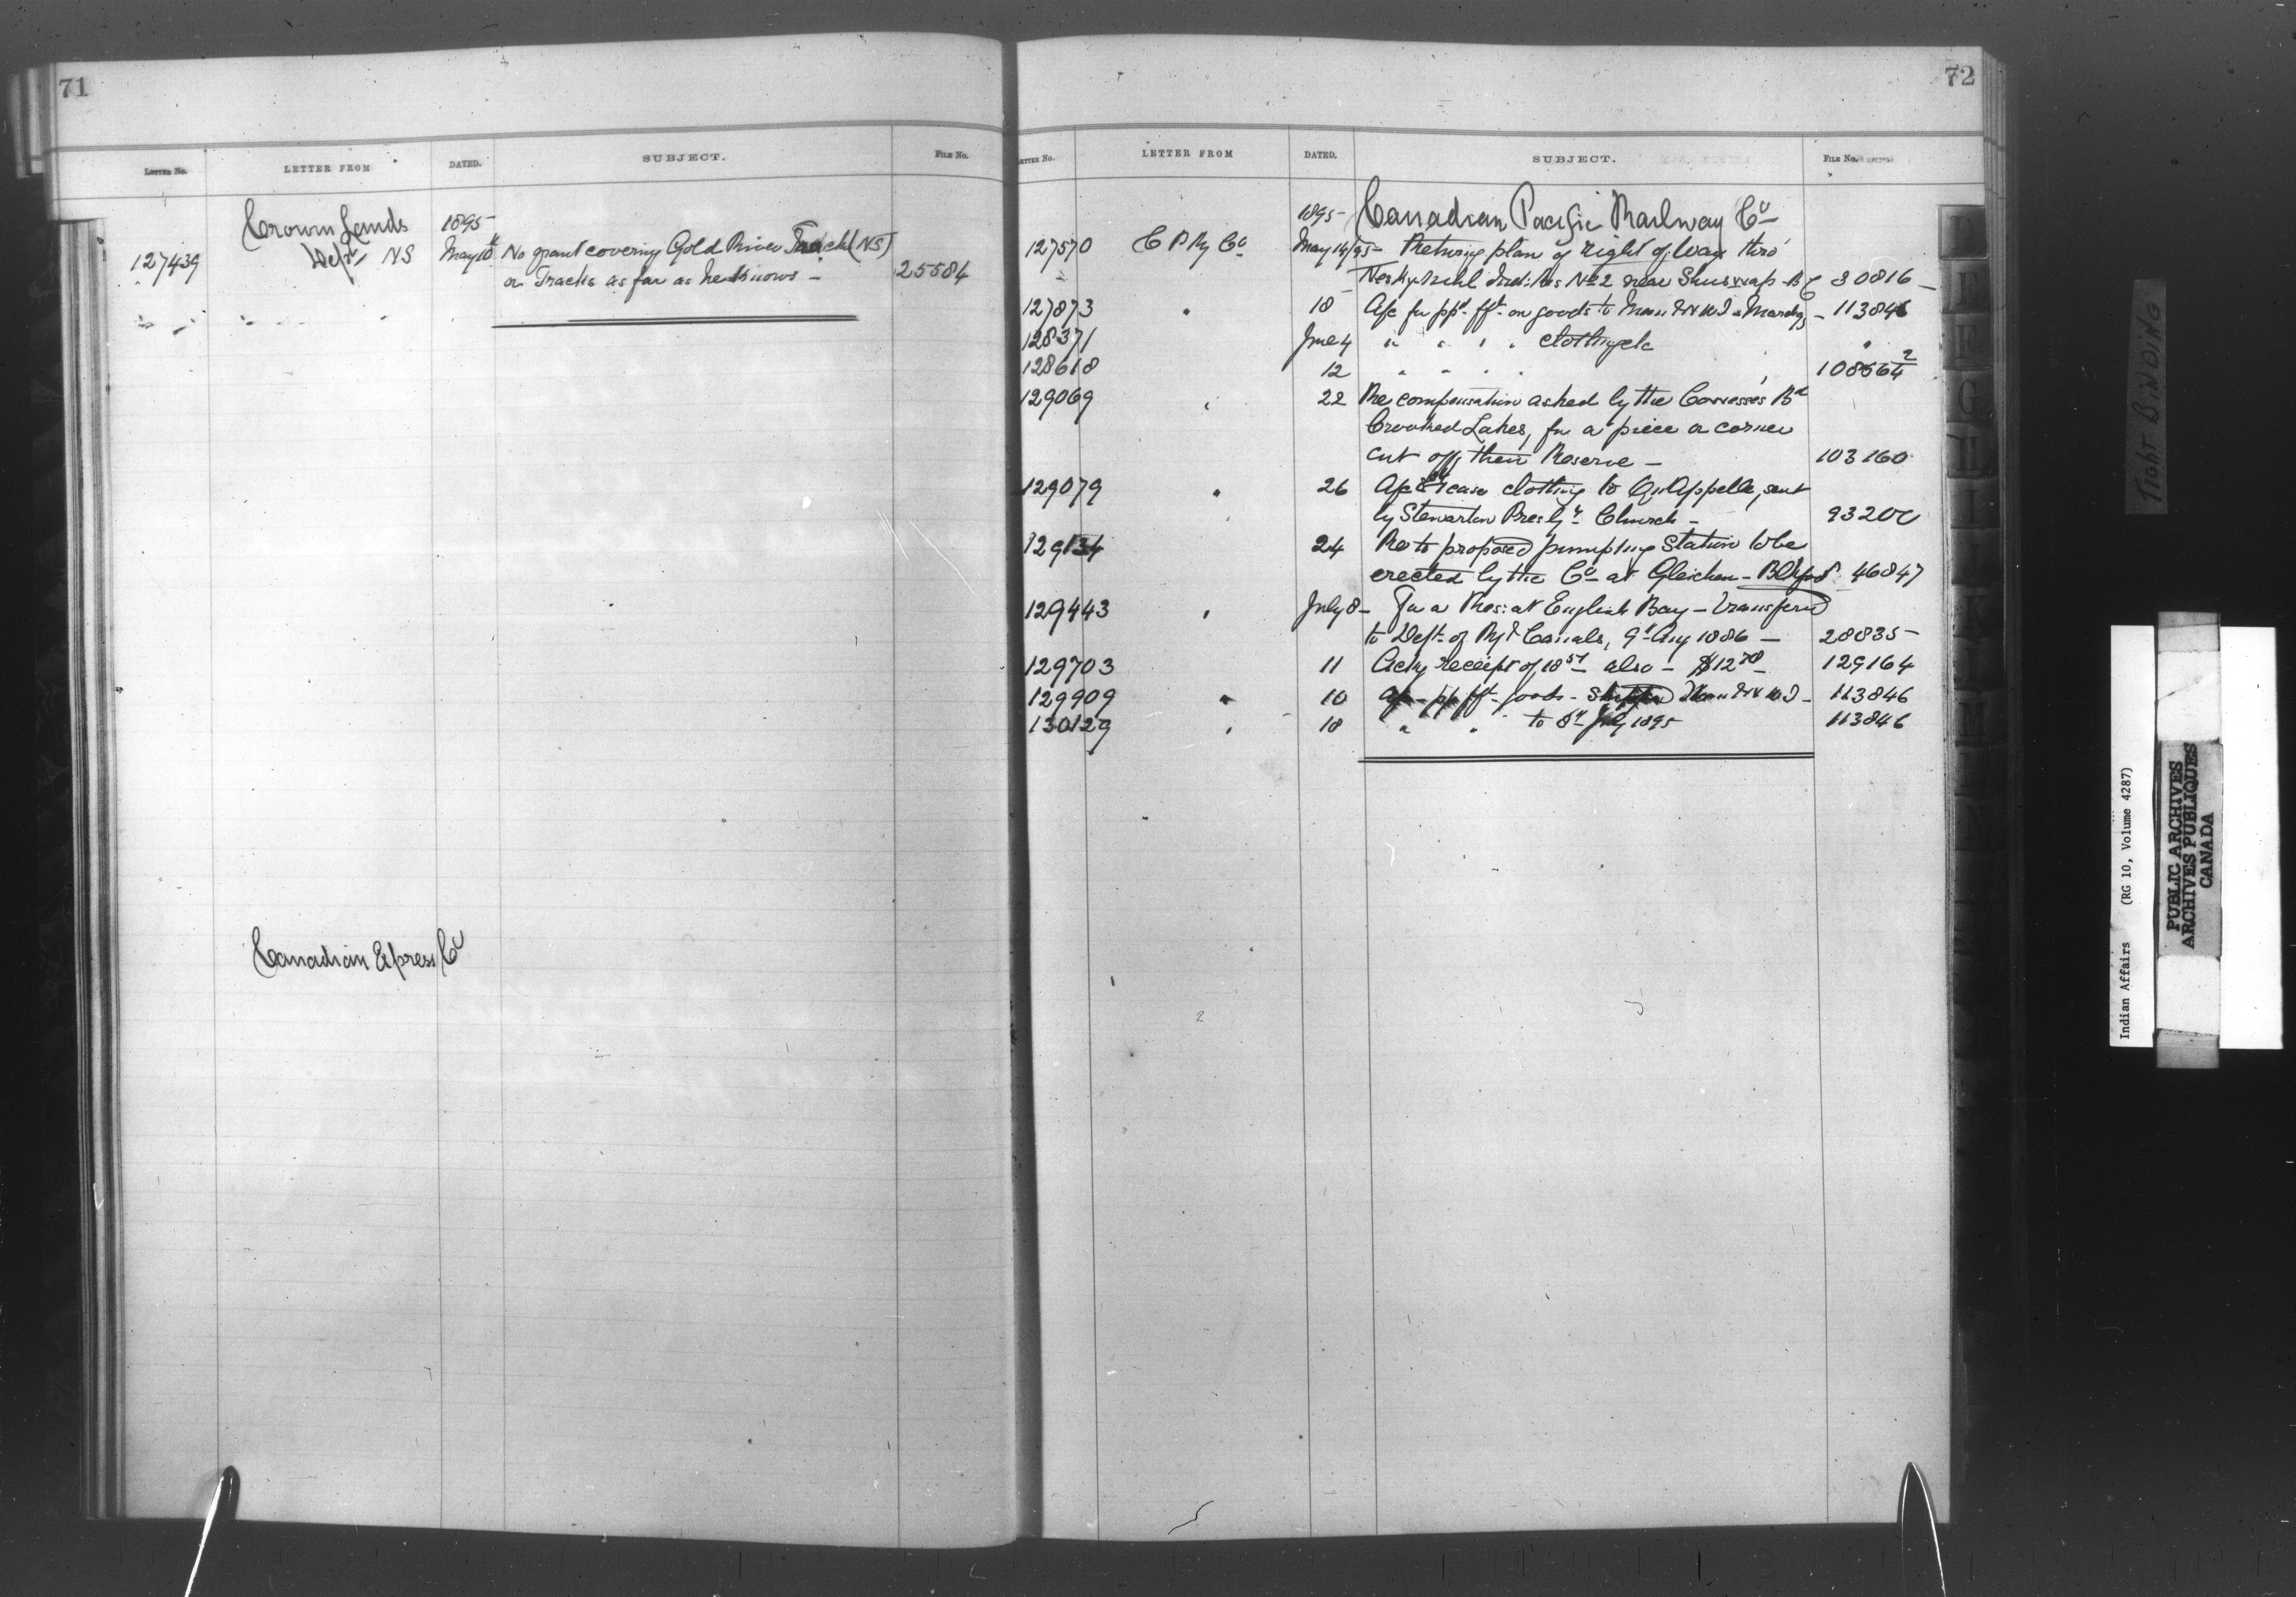 71
LETTER No. LETTER FROM DATED. SUBJECT. FILE No.
Crown Lands 1895
127439 Dept NS May 10 No grant covering Gold River Track (NS)
or Tracks as far as he knows - 25584
Canadian Express Co
72
LETTER No. LETTER FROM DATED. SUBJECT. FILE No.
1895- Canadian Pacific Railway Co
127570 C P Ry Co May 14/95 - Returng plan of right of Way thro'
Ind: Res No 2 near Shuswap - BC 30816 -
127873 " 18 A/c for pp'd f't on goods to Man & NWT - 113846
128371 June 4 " " " " clothing &c "
128618 12 " " " " 
129069 " 22 Re compensation asked by the Cowesses Bd
Crooked Lakes, for a piece or corner
cut off their Reserve - 103160
129079 " 26 A/c 1 case clothing to Qu'Appelle, sent
by Stewarton Presby'r Church - 93200
129134 24 Re to proposed pumping Station to be
erected by the Co at Gleichen - Blkfoot 46847
129443 " July 8 - For a Res: at English Bay - transferd
to Dept of Ry & Canals, 9 Aug 1886 - 28835 -
129703 11 Ackg receipt of also - $12 129164
129909 " 10 A/c pp f't goods - Man & NWT - 113846
130129 " 18 " " to July 1895 113846
TIGHT BINDING
Indian Affairs (RG 10, Volume 4287)
PUBLIC ARCHIVES
ARCHIVES PUBLIQUES
CANADA